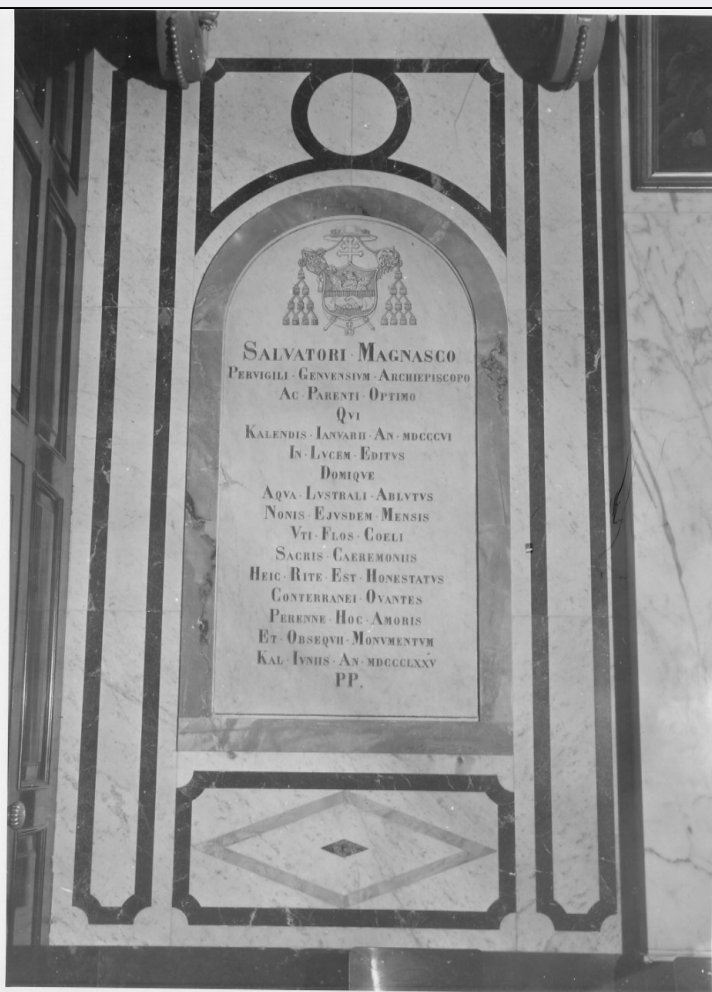 SALVATORI · MAGNASCO
PERVIGILI · GENVENSIVM · ARCHIEPISCOPO
AC · PARENTI · OPTIMO
QVI
KALENDIS · IANVARII · AN · MDCCCVI
IN · LVCEM · EDITVS
DOMIQVE
AQVA · LVSTRALI · ABLVTVS
NONIS · EJVSDEM · MENSIS
VTI · FLOS · COELI
SACRIS · CAEREMONIIS
HEIC · RITE · EST · HONESTATVS
CONTERRANEI · OVANTES
PERENNE · HOC · AMORIS
ET · OBSEQVII · MONVMENTVM
KAL · IVNIIS · AN · MDCCCLXXV
PP.